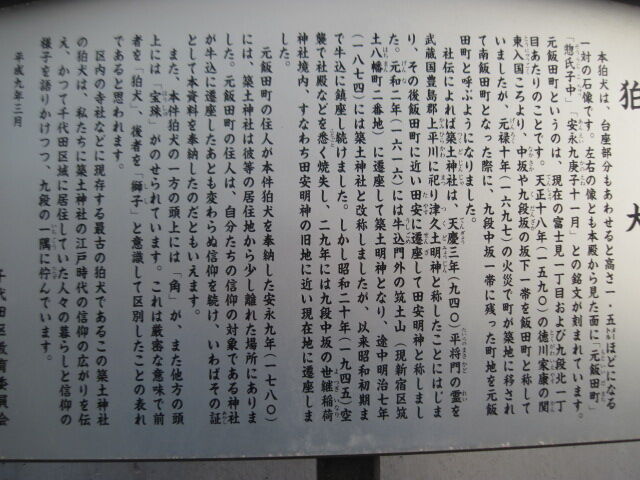 狛犬
本狛犬は、台座部分もあわせると高さ一・五㍍ほどになる
一対の石像です。左右の像とも本殿から見た面に「元飯田町」
「惣氏子中」「安永九庚子十一月」との銘文が刻まれています。
元飯田町というのは、現在の富士見一丁目および九段北一丁
目あたりのことです。天正十八年（一五九〇）の徳川家康の関
東入国ころより、中坂や九段坂の坂下一帯を飯田町と称して
いましたが、元禄十年（一六九七）の火災で町が築地に移され
て南飯田町となった際に、九段中坂一帯に残った町地を元飯
田町と呼ぶようになりました。
社伝によれば築土神社は、天慶三年（九四〇）平将門の霊を
武蔵国豊島郡上平川に祀り津久土明神と称したことにはじま
り、その後飯田町に近い田安に遷座して田安明神と称しまし
た。元和二年（一六一六）には牛込門外の筑土山（現新宿区筑
土八幡町二番地）に遷座して築土明神となり、途中明治七年
（一八七四）には築土神社と改称しましたが、以来昭和初期ま
で牛込に鎮座し続けました。しかし昭和二十年（一九四五）空
襲で社殿などを悉く焼失し、二九年には九段中坂の世継稲荷
神社境内、すなわち田安明神の旧地に近い現在地に遷座しま
した。
元飯田町の住人が本件狛犬を奉納した安永九年（一七八〇）
には、築土神社は彼等の居住地から少し離れた場所にありま
した。元飯田町の住人は、自分たちの信仰の対象である神社
が牛込に遷座したあとも変わらぬ信仰を続け、いわばその証
として本資料を奉納したのだともいえます。
また、本件狛犬の一方の頭上には「角」が、また他方の頭
上には「宝珠」がのせられています。これは厳密な意味で前
者を「狛犬」、後者を「獅子」と意識して区別したことの表れ
であると思われます。
区内の寺社などに現存する最古の狛犬であるこの築土神社
の狛犬は、私たちに築土神社の江戸時代の信仰の広がりを伝
え、かつて千代田区域に居住していた人々の暮らしと信仰の
様子を語りかけつつ、九段の一隅に佇んでいます。
平成九年三月
千代田区教育委員会